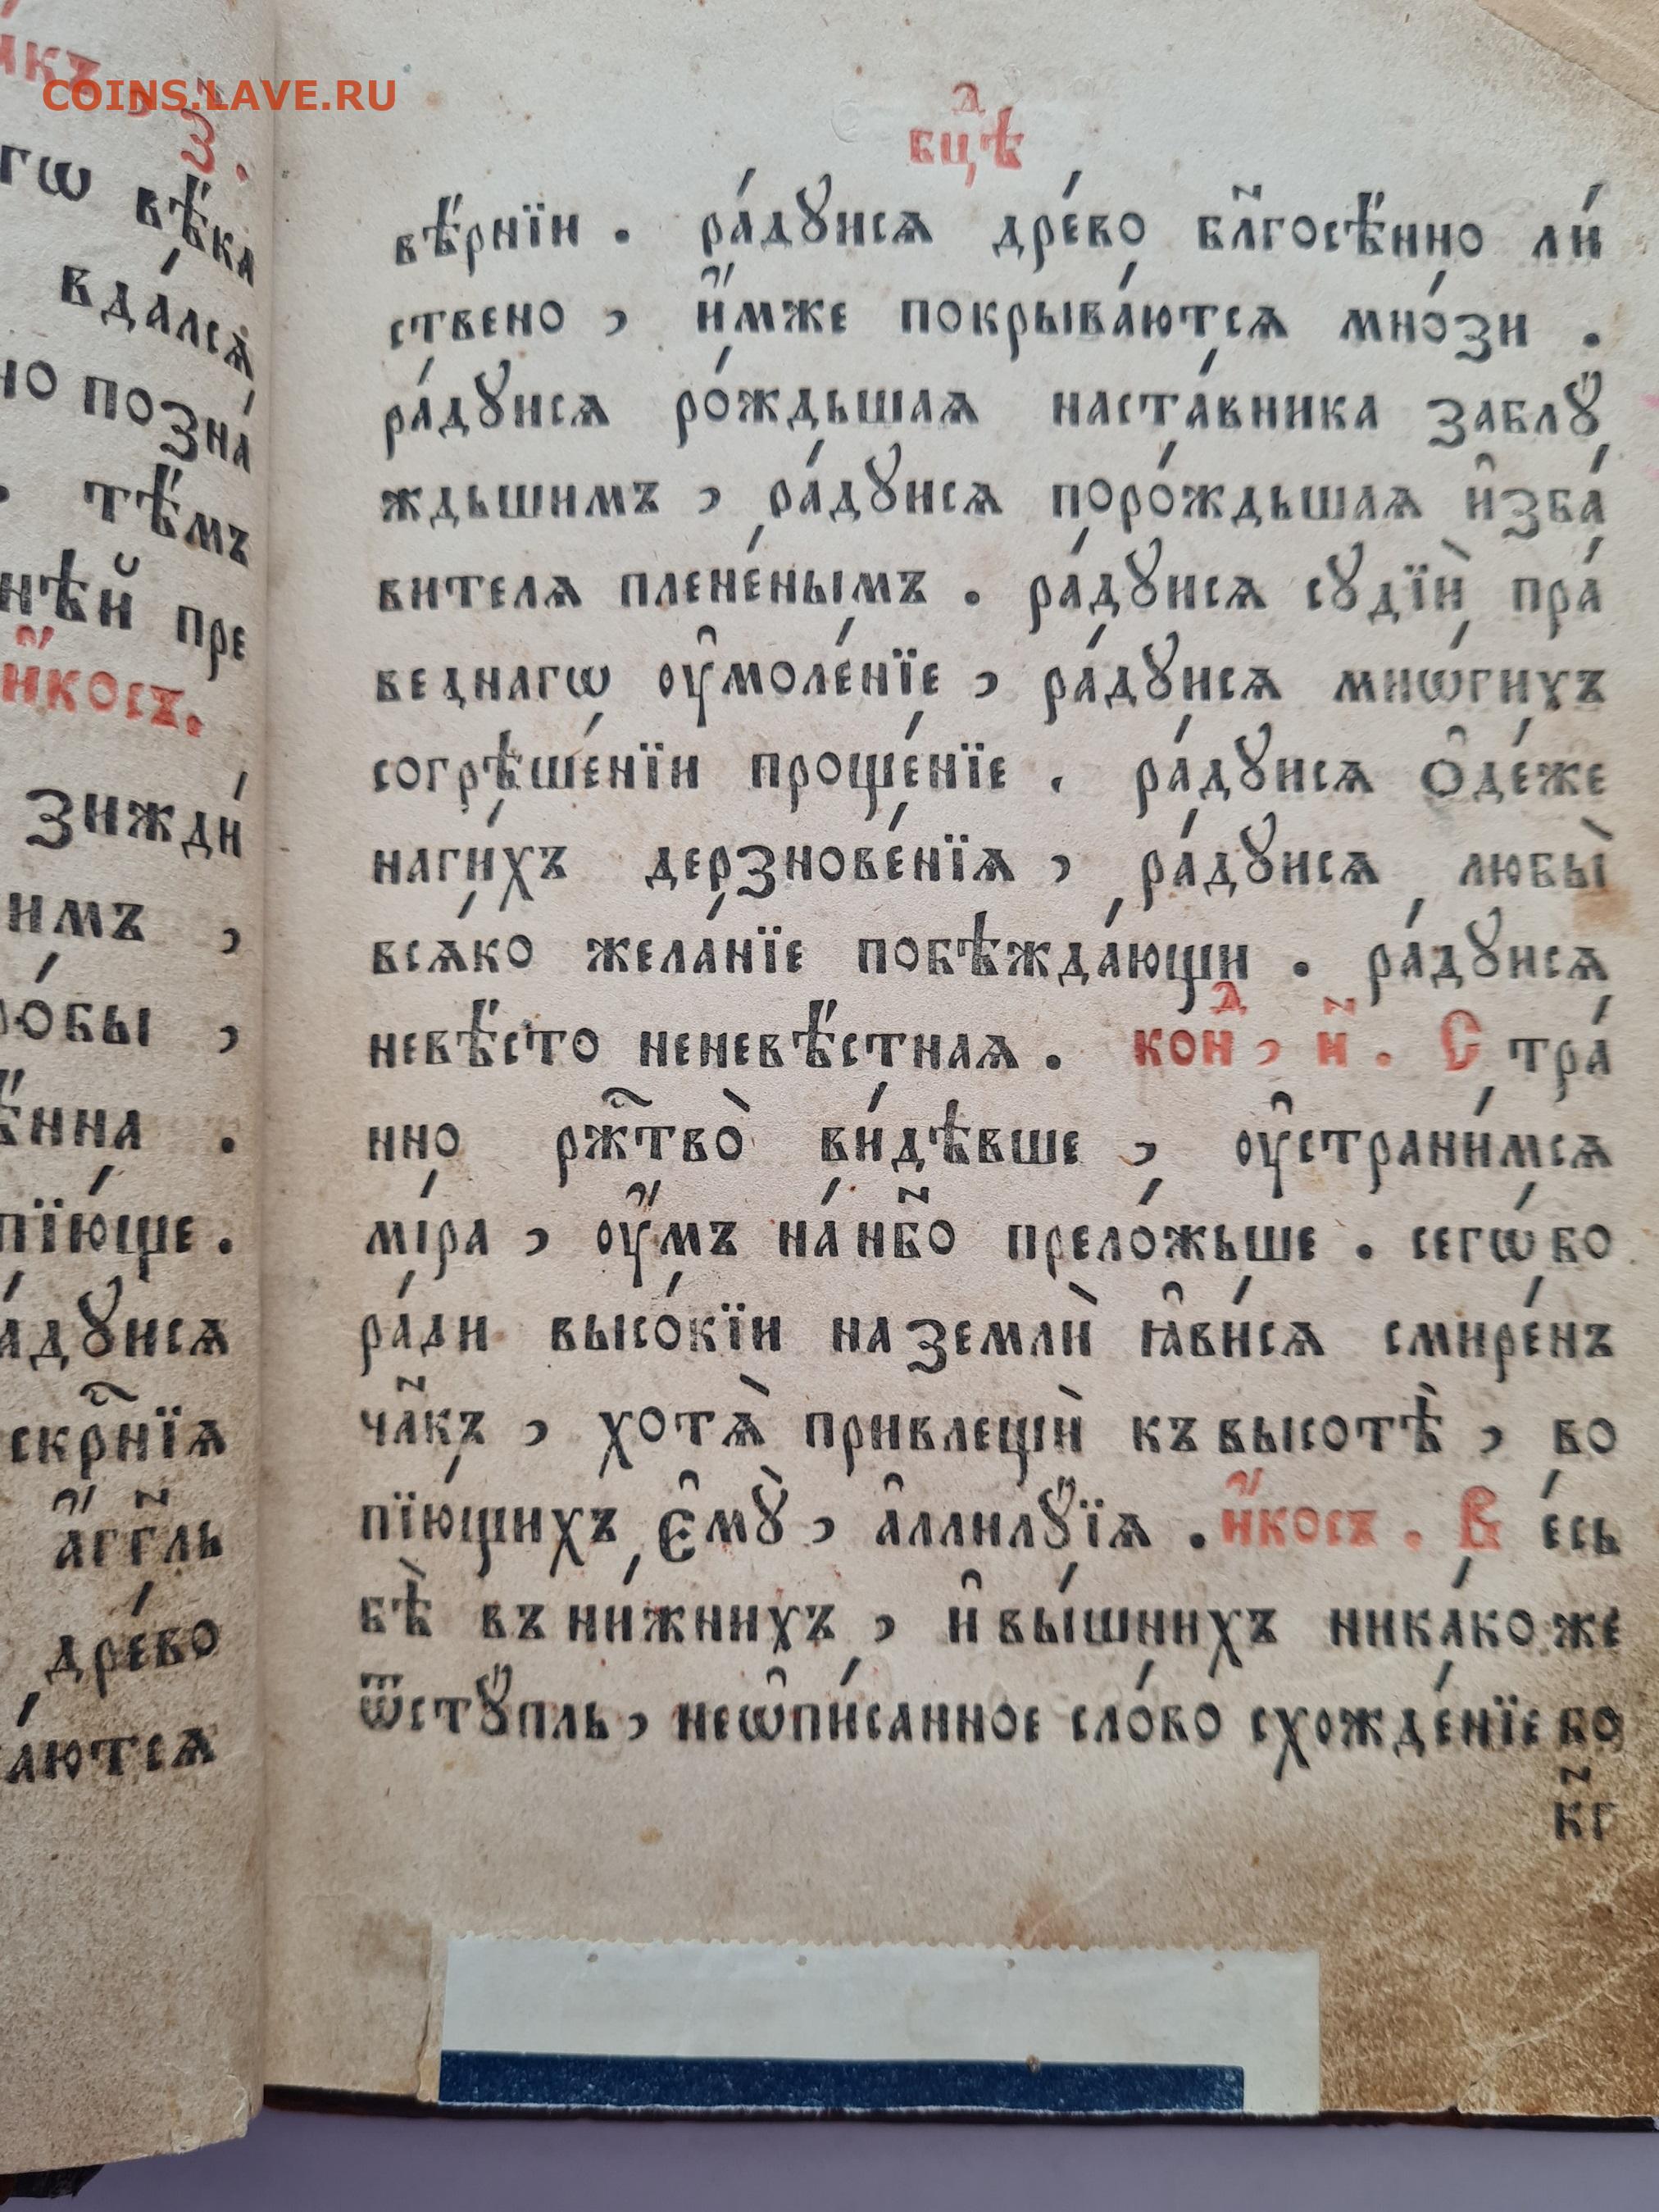 COINS.LAVE.RU
гѡ вѣ́ка
вда́лся
но позна́
. тѣ́мъ
нѣй пре
и҆́косъ.
зижди́
имъ ,
ѣнна .
пїю́ще .
а́дꙋисѧ
скр҃нїѧ
а҆́гг҃ль
дре́во
а́ютсѧ
бцⷣѣ
вѣ́рнїи . ра́дꙋисѧ дре́во бл҃госѣ́нно ли́
ствено , и҆́мже покрыва́ютсѧ мно́зи .
ра́дꙋисѧ ро́ждьшаѧ наста́вника заблꙋ́
ждьшимъ , ра́дꙋисѧ поро́ждьшаѧ и҆зба́
вителѧ плене́нымъ . ра́дꙋисѧ сꙋдїѝ пра́
веднагѡ оу҆моле́нїе , ра́дꙋисѧ мнѡ́гихъ
согрѣше́нїи проще́нїе . ра́дꙋисѧ о҆де́же
наги́хъ дерзнове́нїѧ , ра́дꙋисѧ любы̀
всѧ́ко жела́нїе побѣжда́ющи . ра́дꙋисѧ
невѣ́сто неневѣ́стнаѧ . конⷣ , и҃ . Стра́
нно рж҇тво̀ ви́дѣвше , оу҆страни́мсѧ
мі́ра , оу҆́мъ на́ нб҃о прело́жьше . сегѡ́ бо
ра́ди высо́кїи на землѝ ꙗ҆ви́сѧ смире́нъ
чл҃къ , хотѧ̀ привлещѝ къ высотѣ̀ , во
пїю́щихъ є҆мꙋ̀ , а҆ллилꙋ́їѧ . и҆́косъ . Ве́сь
бѣ̀ въ ни́жнихъ , и҆ вы́шнихъ ника́коже
ѿстꙋ́пль , неѡ҆пи́санное сло́во схожде́нїе бо
к҃г